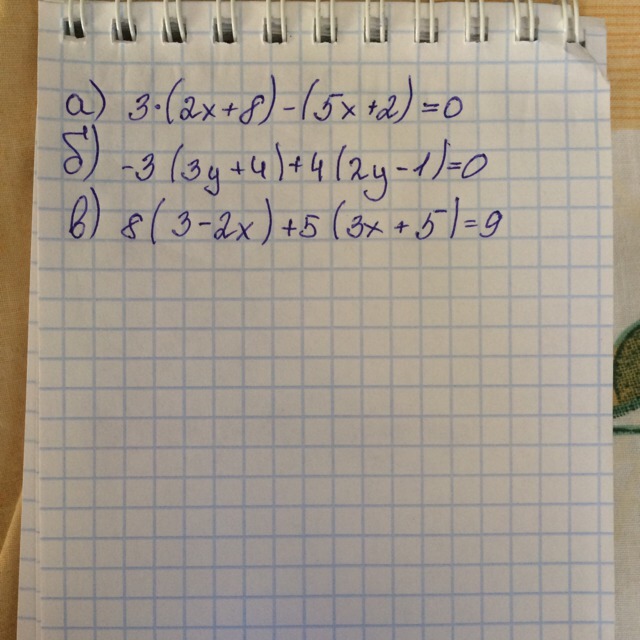 а) 3·(2x+8)-(5x+2)=0
б) -3(3y+4)+4(2y-1)=0
в) 8(3-2x)+5(3x+5)=9